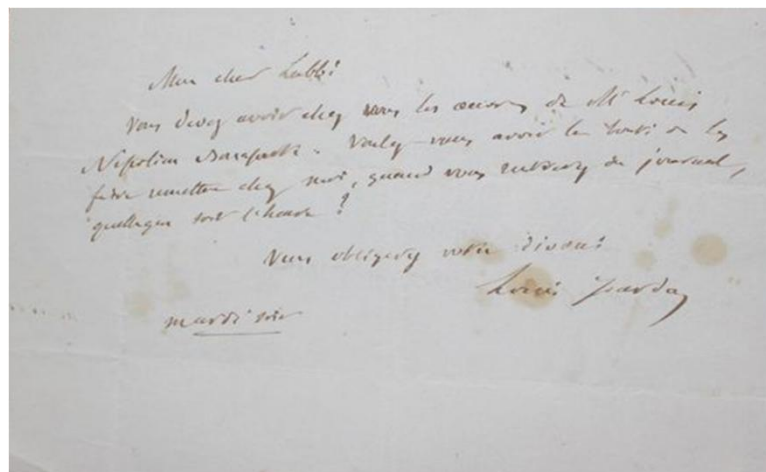 Mon cher Labbé
Vous devez avoir chez vous les œuvres de Mr Louis
Napoléon Bonaparte. Voulez-vous avoir la bonté de les
faire remettre chez moi, quand vous rentrerez du journal,
quelque soit l'heure ?
Vous obligerez votre dévoué
Louis Jourdan
mardi soir